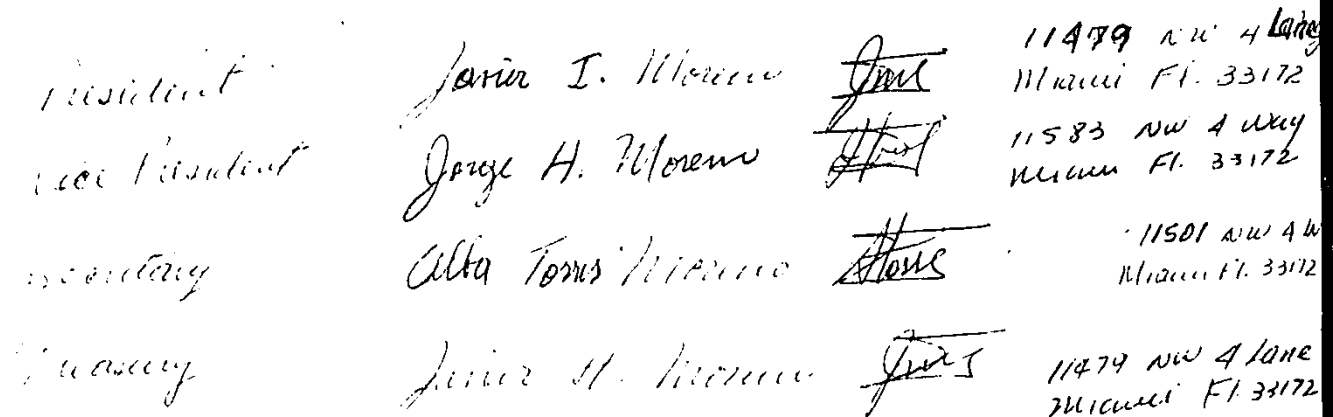 President Javier I. Moreno 11479 NW 4 Lane
Miami Fl. 33172
Vice President Jorge H. Moreno 11583 NW 4 Way
Miami Fl. 33172
Secretary Alba Torres Moreno 11501 NW 4 W
Miami Fl. 33172
Treasury Javier H. Moreno 11479 NW 4 Lane
Miami Fl. 33172